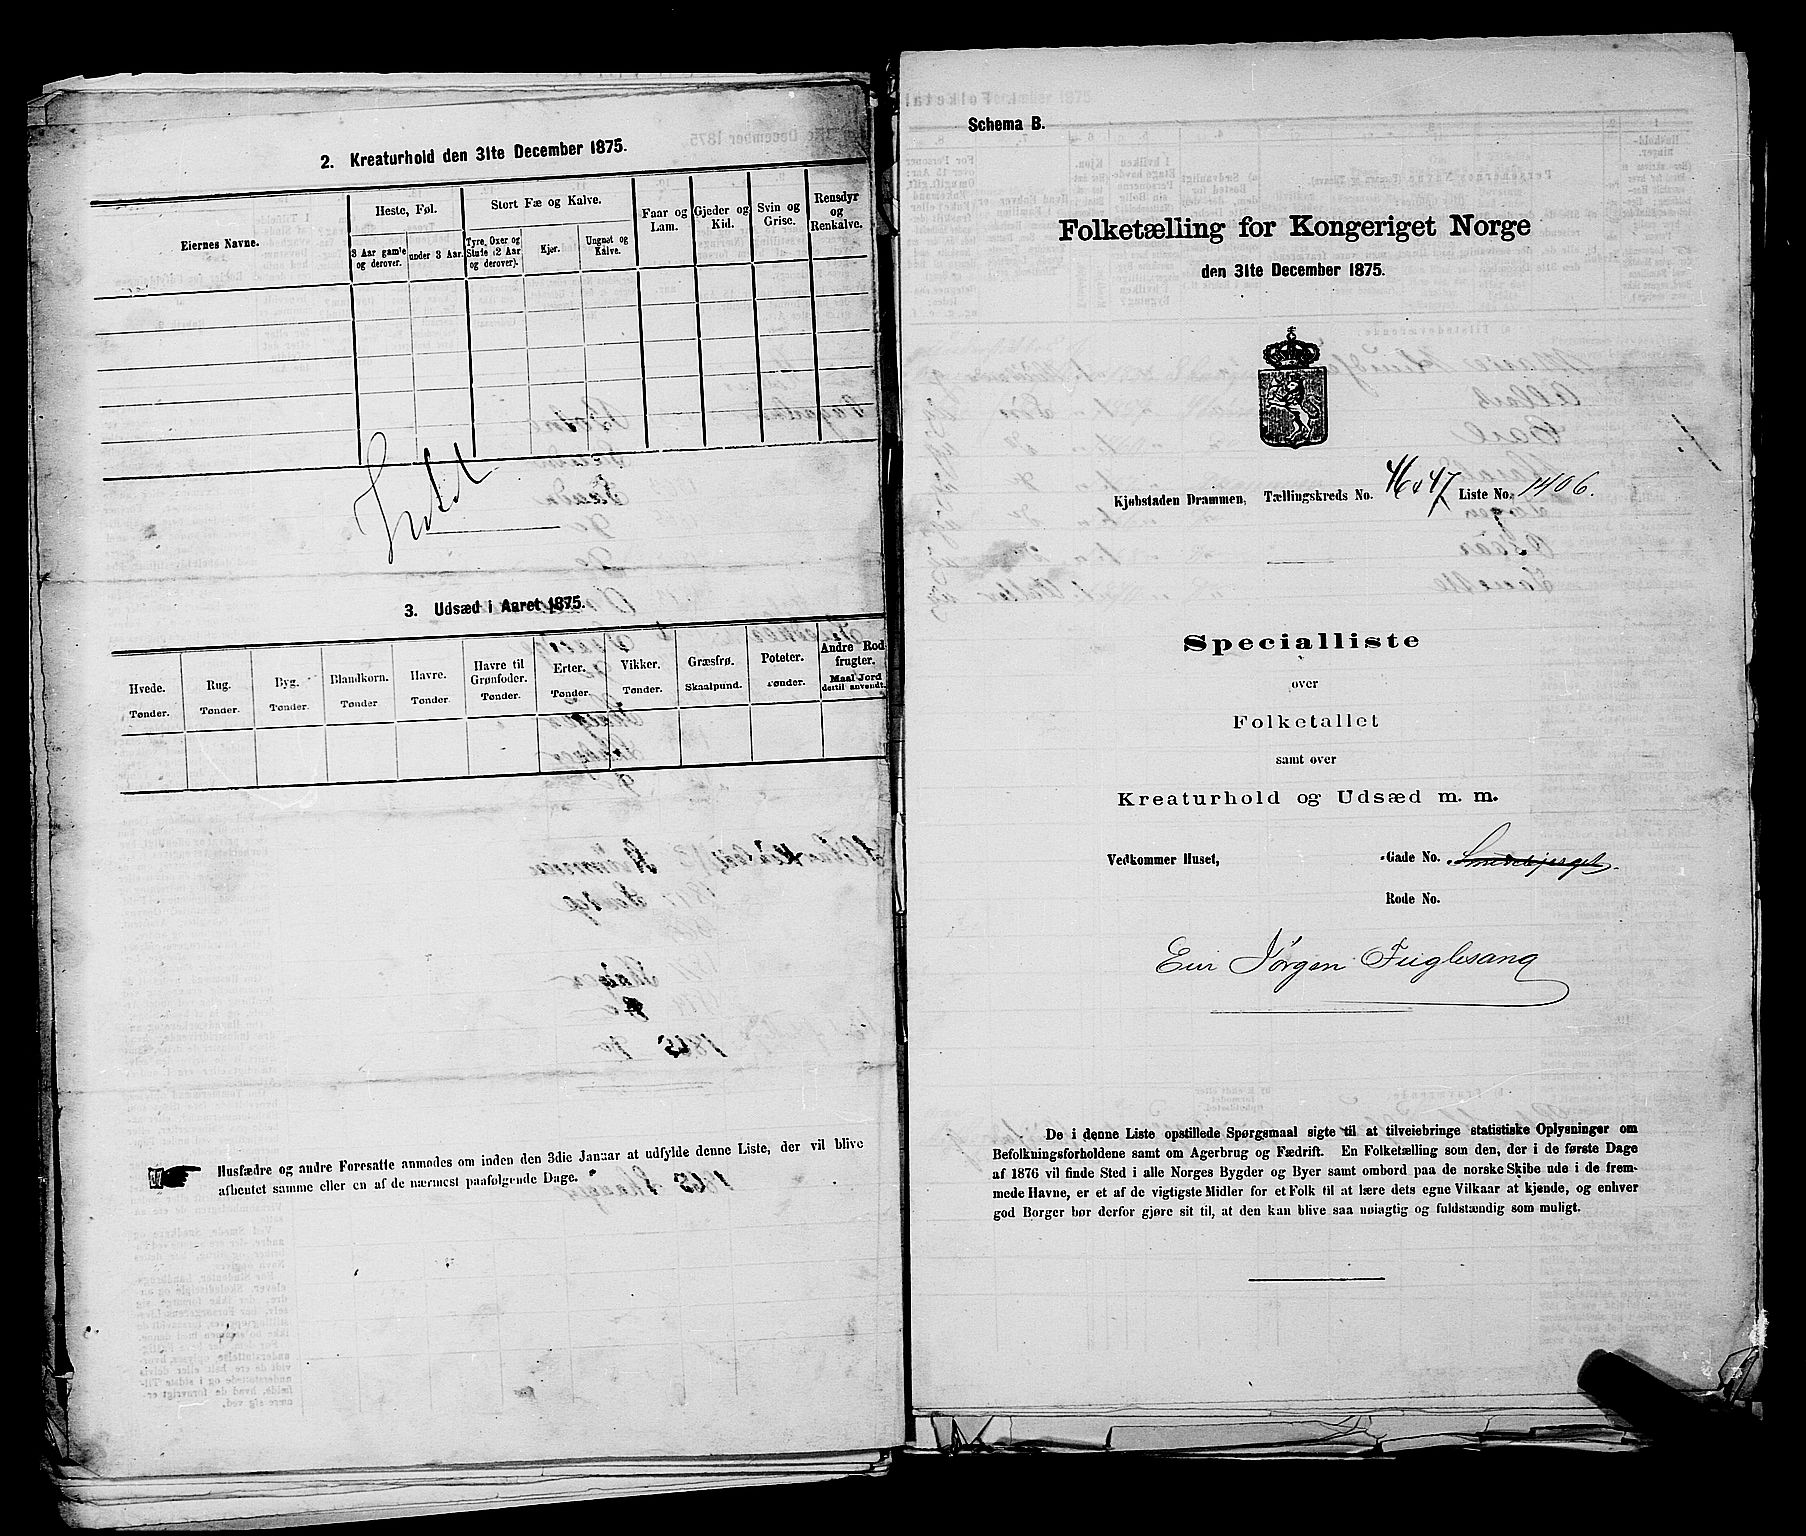 2. Kreaturhold den 31te December 1875.
Eiernes Navne.
Heste, Føl.
3 Aar gamle og derover.
under 3 Aar.
Stort Fæ og Kalve.
Tyre, Oxer og Stude (2 Aar og derover).
Kjør.
Ungnøt og Kalve.
Faar og Lam.
Gjeder og Kid.
Svin og Grise.
Rensdyr og Renkalve.
3. Udsæd i Aaret 1875.
Hvede. Tønder.
Rug. Tønder.
Byg. Tønder.
Blandkorn. Tønder
Havre. Tønder.
Havre til Grønfoder. Tønder.
Erter. Tønder.
Vikker. Tønder.
Græsfrø. Skaalpund.
Poteter. Tønder.
Andre Rodfrugter. Maal Jord dertil anvendt.
Husfædre og andre Foresatte anmodes om inden den 3die Januar at udfylde denne Liste, der vil blive
afhentet samme eller en af de nærmest paafølgende Dage.
Schema B.
Folketælling for Kongeriget Norge
den 31te December 1875.
Kjøbstaden Drammen, Tællingskreds No. 46 & 47 Liste No. 1406.
Specialliste
over
Folketallet
samt over
Kreaturhold og Udsæd m. m.
Vedkommer Huset, -Gade No. Smedebjerget.
Rode No.
Eier Jørgen Fuglesang
De i denne Liste opstillede Spørgsmaal sigte til at tilveiebringe statistiske Oplysninger om
Befolkningsforholdene samt om Agerbrug og Fædrift. En Folketælling som den, der i de første Dage
af 1876 vil finde Sted i alle Norges Bygder og Byer samt ombord paa de norske Skibe ude i de frem-
mede Havne, er et af de vigtigste Midler for et Folk til at lære dets egne Vilkaar at kjende, og enhver
god Borger bør derfor gjøre sit til, at den kan blive saa nøiagtig og fuldstændig som muligt.